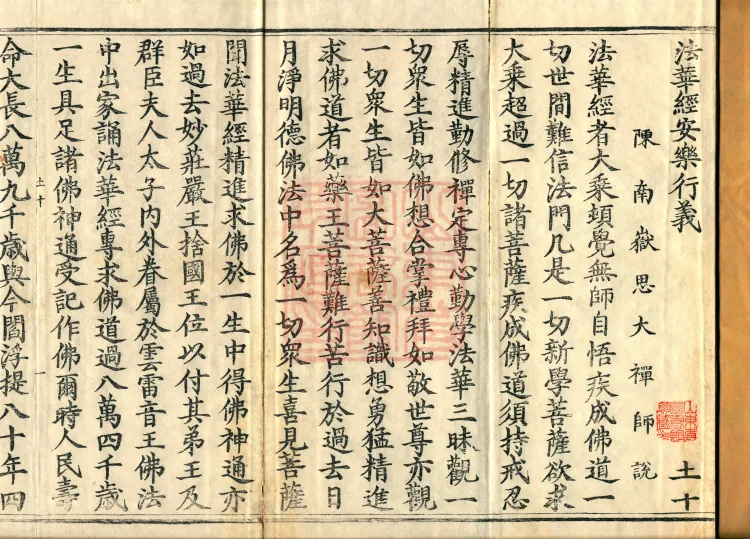 法華經安樂行義 土十
陳南嶽思大禪師說
法華經者大乘頓覺無師自悟疾成佛道一
切世間難信法門凡是一切新學菩薩欲求
大乘超過一切諸菩薩疾成佛道須持戒忍
辱精進勤修禪定專心勤學法華三昧觀一
切眾生皆如佛想合掌禮拜如敬世尊亦觀
一切眾生皆如大菩薩善知識想勇猛精進
求佛道者如藥王菩薩難行苦行於過去日
月淨明德佛法中名為一切眾生喜見菩薩
聞法華經精進求佛於一生中得佛神通亦
如過去妙莊嚴王捨國王位以付其弟王及
群臣夫人太子內外眷屬於雲雷音王佛法
中出家誦法華經專求佛道過八萬四千歲
一生具足諸佛神通受記作佛爾時人民壽
土十 一
命大長八萬九千歲與今閻浮提八十年四